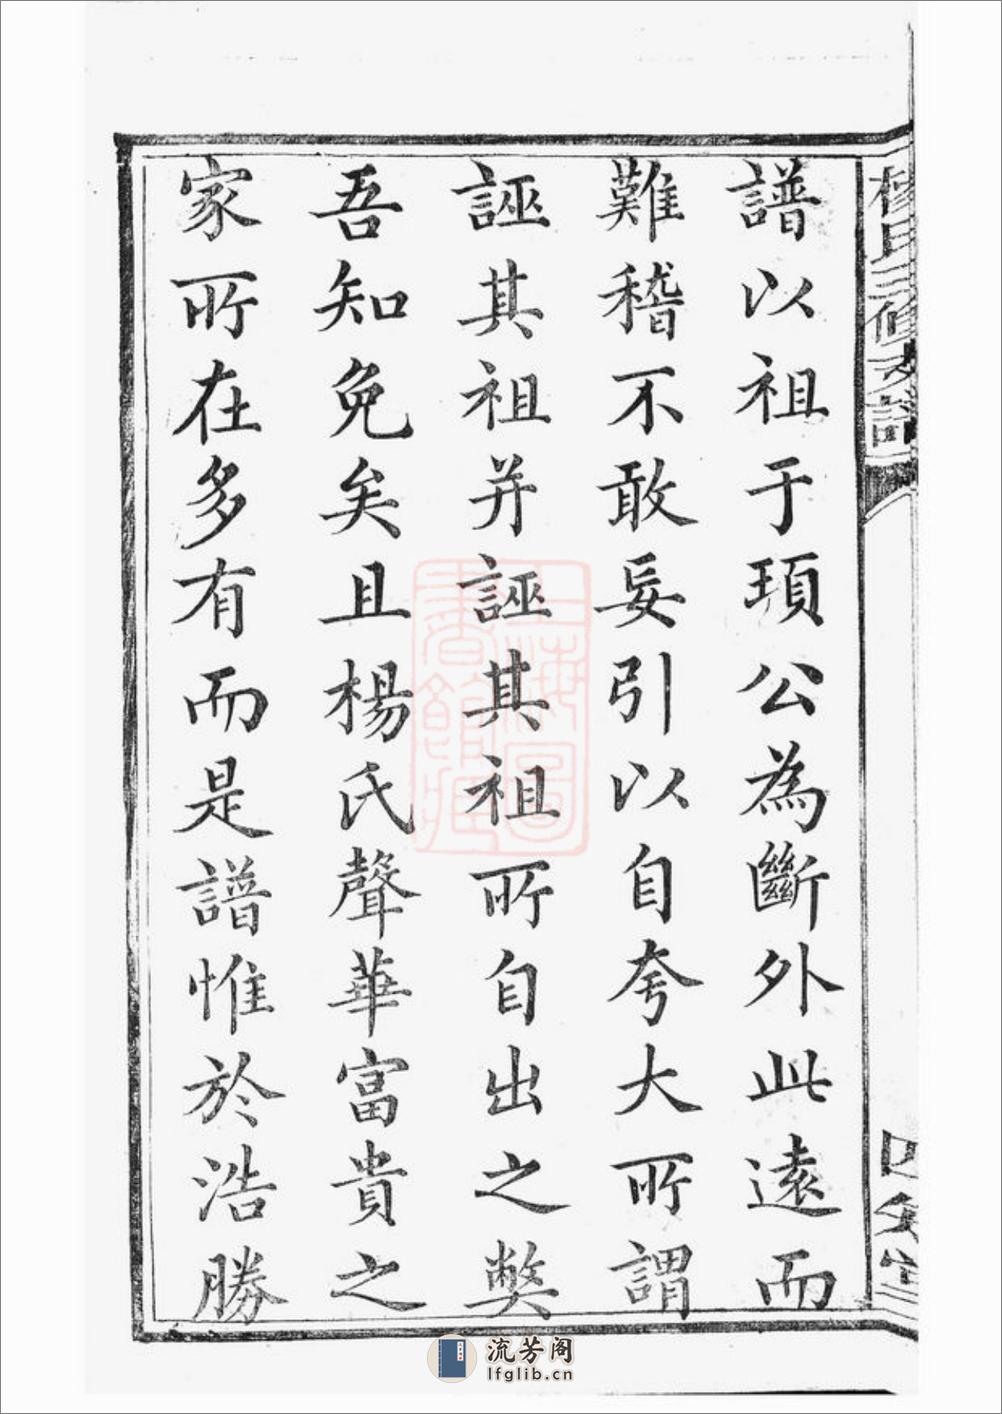 譜以祖于頊公為斷外此遠而
難稽不敢妄引以自夸大所謂
誣其祖并誣其祖所自出之獘
吾知免矣且楊氏聲華富貴之
家所在多有而是譜惟於浩勝
楊氏三修支譜
四知堂
上海圖書館藏
流芳阁
lfglib.cn